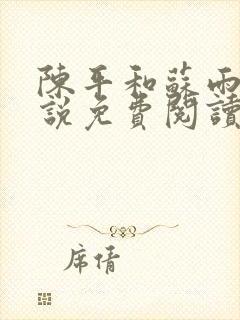 陳平和蘇雨
說免費閱讀
席情